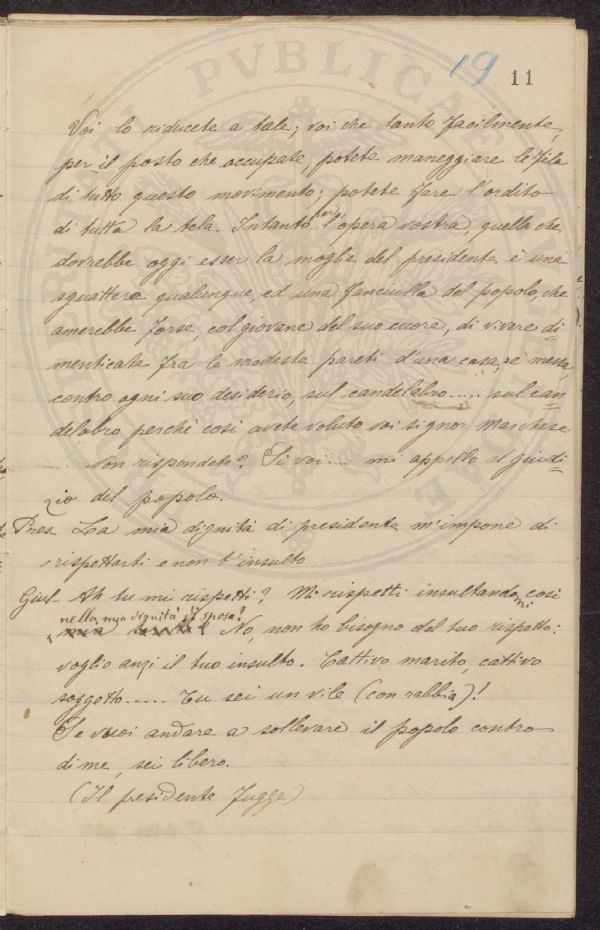 19 11
Voi lo riducete a tale; voi che tanto facilmente,
per il posto che occupate, potete maneggiare le fila
di tutto questo movimento; potete fare l'ordito
di tutta la tela. Intanto per l'opera vostra, quella che
dovrebbe oggi esser la moglie del presidente è una
sguattera qualunque, ed una fanciulla del popolo, che
amerebbe forse, col giovane del suo cuore, di vivere di-
menticata fra le modeste pareti d'una casa, è messa,
contro ogni suo desiderio, sul candelabro..... sul can-
delabro perchè così avete voluto voi signor Marchese
Non rispondete? Sì voi.... mi appello al giudi-
zio del popolo.
Pres. La mia dignità di presidente m'impone di
rispettarti e non t'insulto
Giul- Ah tu mi rispetti? Mi rispetti insultandomi così
nella mia dignità di sposa?
No, non ho bisogno del tuo rispetto:
voglio anzi il tuo insulto. Cattivo marito, cattivo
soggetto..... Tu sei un vile (con rabbia)!
Se vuoi andare a sollevare il popolo contro
di me, sei libero.
(Il presidente fugge)